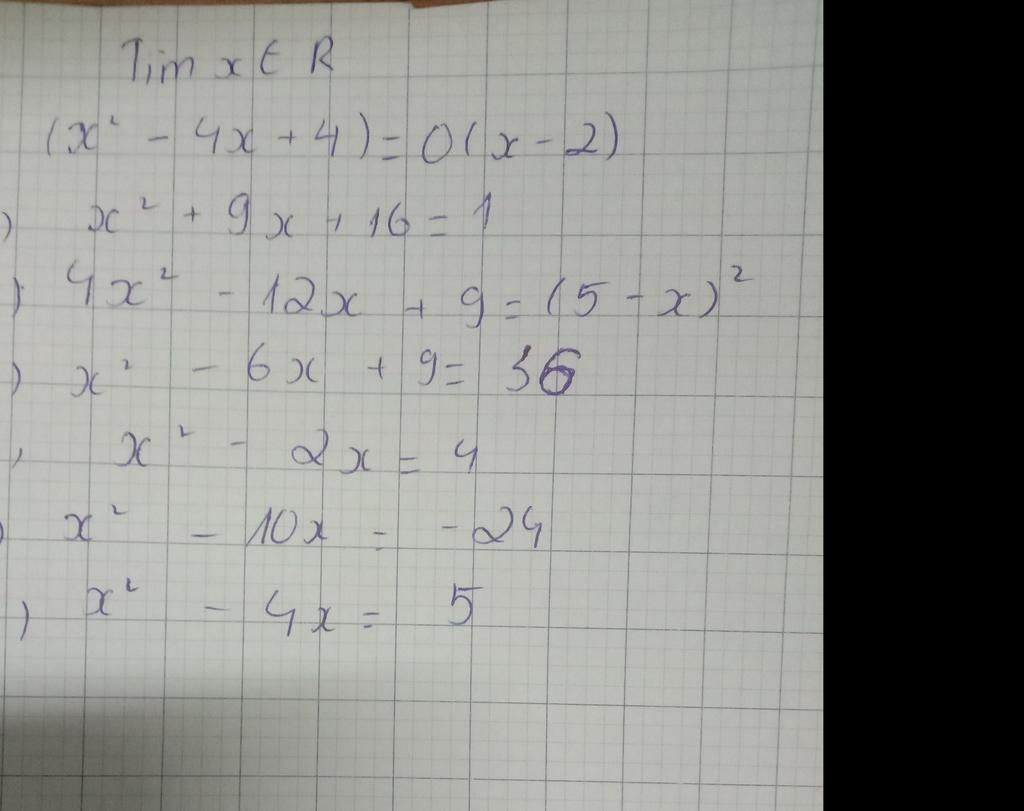 Tìm x ∈ R
(x² - 4x + 4) = 0(x - 2)
) x² + 9x + 16 = 1
) 4x² - 12x + 9 = (5 - x)²
) x² - 6x + 9 = 36
, x² - 2x = 4
) x² - 10x = -24
, x² - 4x = 5